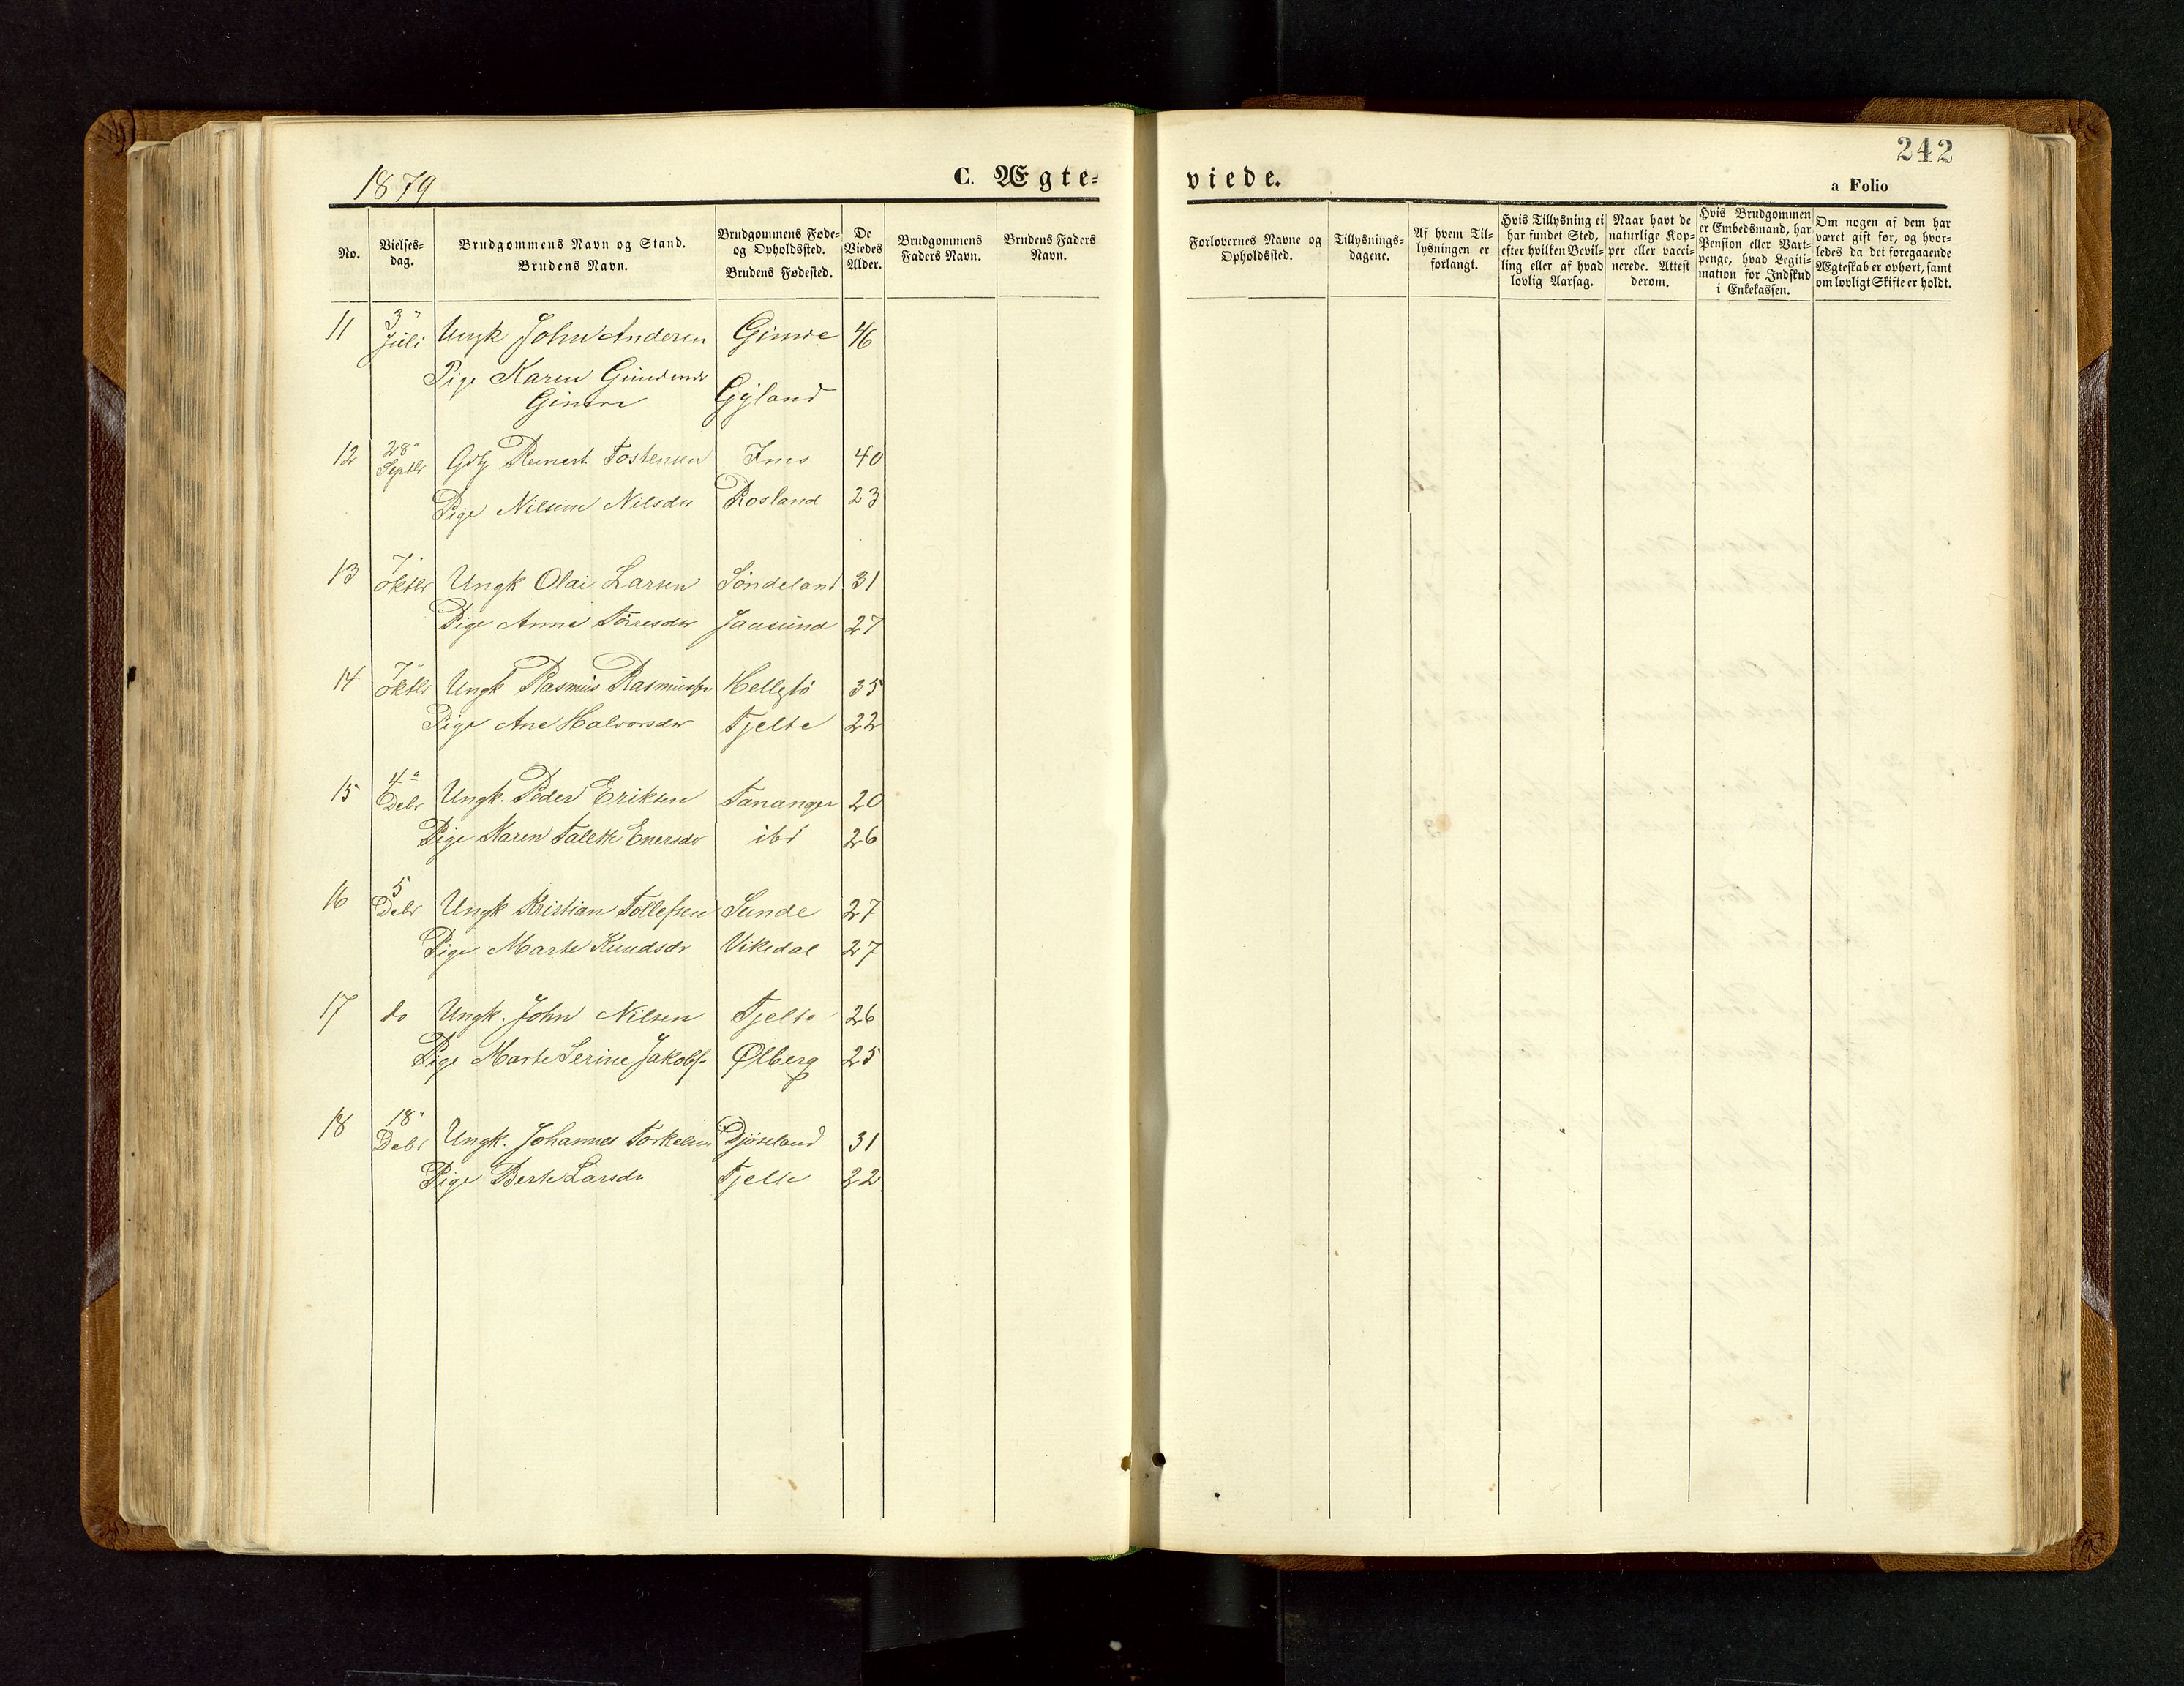 242
1879
C. Ægte-
viede.
a Folio
No.
Vielses-
dag.
Brudgommens Navn og Stand.
Brudens Navn.
Brudgommens Føde-
og Opholdssted.
Brudens Fødested.
De
Viedes
Alder.
Brudgommens
Faders Navn.
Brudens Faders
Navn.
Forlovernes Navne og
Opholdssted.
Tillysnings-
dagene.
Af hvem Til-
lysningen er
forlangt.
Hvis Tillysning ei
har fundet Sted,
efter hvilken Bevil-
ling eller af hvad
lovlig Aarsag.
Naar havt de
naturlige Kop-
per eller vacci-
nerede. Attest
derom.
Hvis Brudgommen
er Embedsmand, har
Pension eller Vart-
penge, hvad Legiti-
mation for Indskud
i Enkekassen.
Om nogen af dem har
været gift før, og hvor-
ledes da det foregaaende
Ægteskab er ophørt, samt
om lovligt Skifte er holdt.
11 3" Juli Ungk John Andersen Gimre 46
Pige Karen
Gimre Gyland
12 28" Septbr Gdbg Reinert Tostensen Ims 40
Pige Nilsine Nilsdtr Rosland 23
13 7" Oktbr Ungk Olai Larsen Söndeland 31
Pige Anne Tørresdtr Jaasund 27
14 7" Oktbr Ungk Rasmus Rasmussen Hellestö 35
Pige Ane Halvorsdtr Tjelte 22
15 4" Debr Ungk. Peder Eriksen Tananger 20
Pige Karen Talette Enersdtr ibd 26
16 5 Debr Ungk Kristian Tollefsen Sande 27
Pige Marte Knudsdr Vikedal 27
17 do Ungk. John Nilsen Tjelte 26
Pige Marte Serine Jakobs- Ølberg 25
18 18" Debr Ungk. Johannes Torkelsen Djöseland 31
Pige Berte Larsdtr Tjelte 22